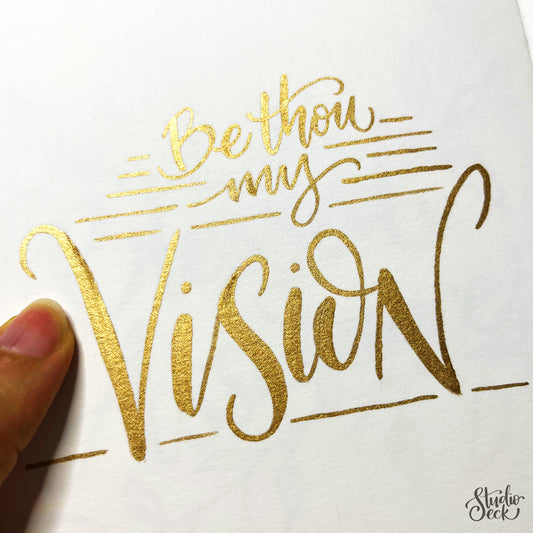 Be thou
my
ViSioN
Studio
Seck